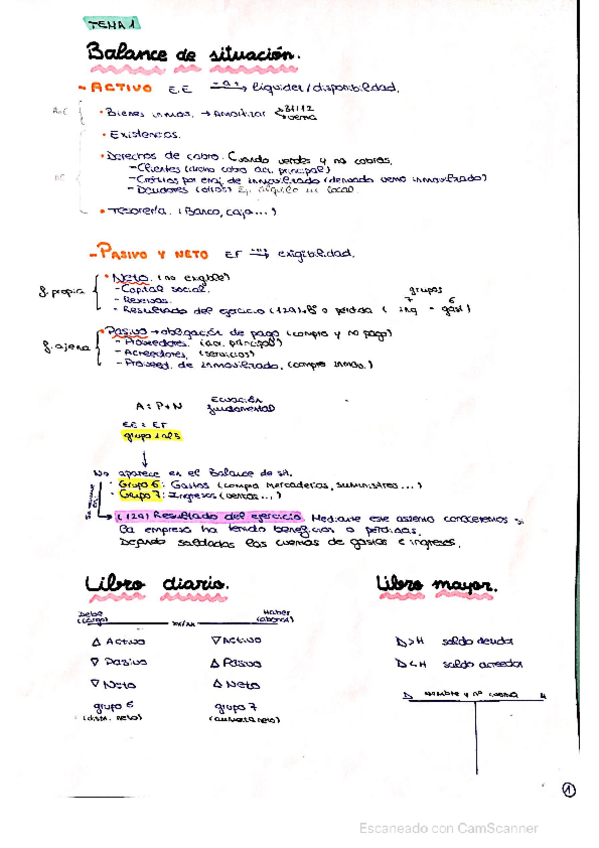 TEMA 1
Balance de situación.
- ACTIVO E.E - a + liquidez / disponibilidad.
• Bienes inmov. → Amortizar 31/12
venta
• Existencias.
• Derechos de cobro. Cuando vendes y no cobras.
- Clientes (dcho cobro act. principal)
- Créditos por enaj. de inmovilizado (derivado venta inmovilizado)
- Deudores (otros) Ej. alquilo un local.
• Tesorería. (Banco, caja...)
- PASIVO Y NETO EF exigibilidad.
f. propia
• Neto. (no exigible)
- Capital social.
- Reservas.
- Resultado del ejercicio (129) o pérdida ( ing - gast)
grupos
7 6
f. ajena
• Pasivo → obligación de pago (compro y no pago)
- Proveedores. (act. principal)
- Acreedores. (servicios)
- Proveed. de inmovilizado. (compro inmov.)
A = P + N Ecuación
fundamental
EE = EF
grupo 1 al 5
No aparece en el Balance de sit.
• Grupo 6: Gastos (compra mercaderías, suministros...)
• Grupo 7: Ingresos (ventas...)
→ (129) Resultado del ejercicio. Mediante este asiento conoceremos si
la empresa ha tenido beneficios o pérdidas.
Dejando saldadas las cuentas de gastos e ingresos.
Libro diario.
Debe
(cargo)
xx/xx
Haber
(abono)
△ Activo ▽ Activo
▽ Pasivo △ Pasivo
▽ Neto △ Neto
grupo 6 grupo 7
(dism. neto) (aumenta neto)
Libro mayor.
D > H saldo deudor
D < H saldo acreedor
D nombre y nº cuenta H
1
Escaneado con CamScanner